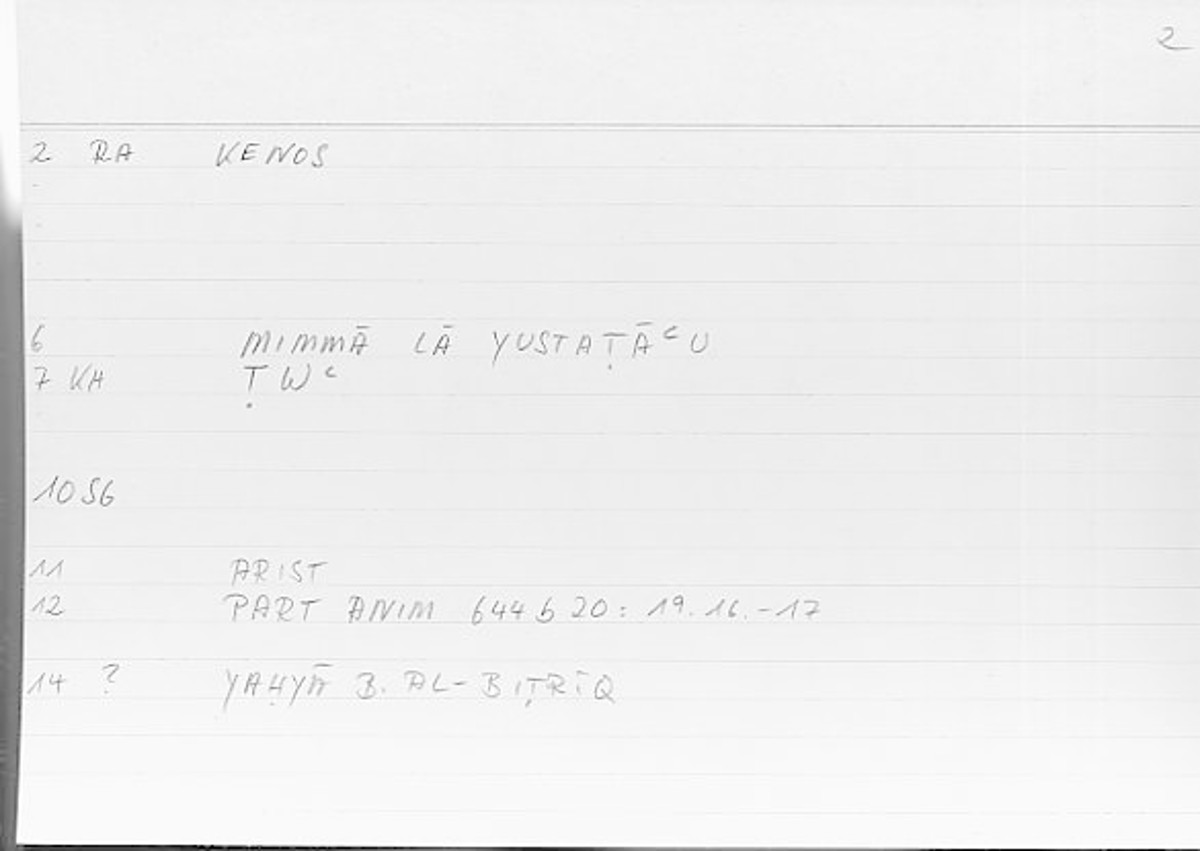 2
2 RA KENOS
6 MIMMĀ LĀ YUSTAṬĀʿU
7 KH ṬWʿ
10 SG
11 ARIST
12 PART ANIM 644 b 20: 19.16.-17
14 ? YAḤYĀ B. AL-BIṬRĪQ